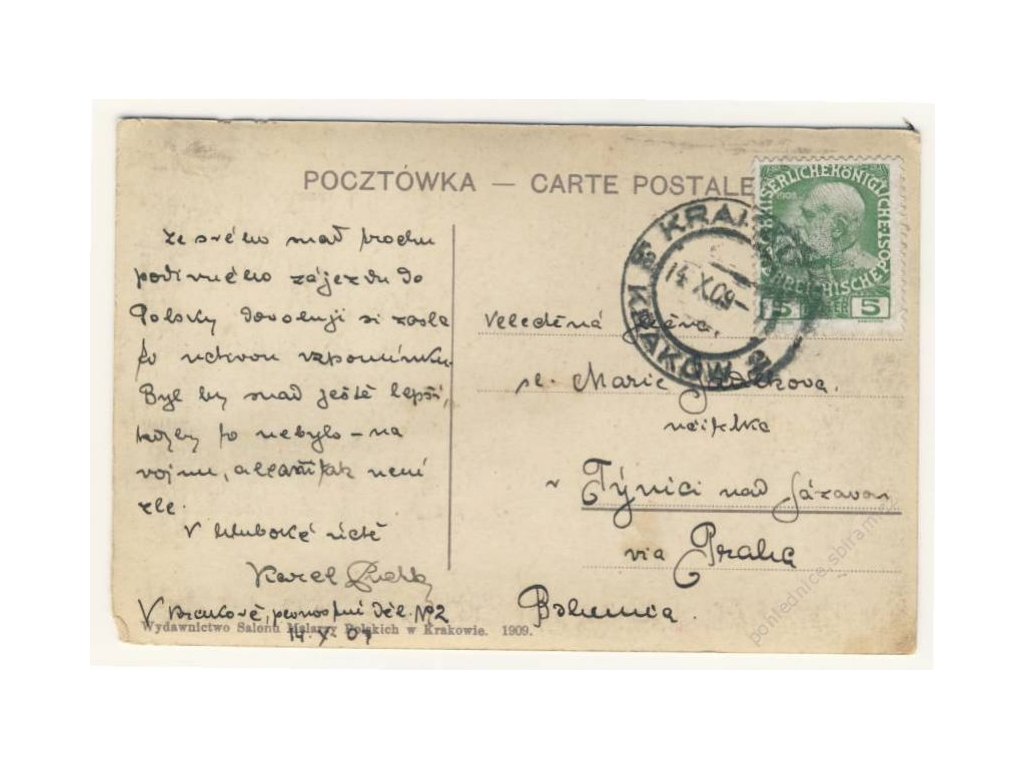 POCZTÓWKA — CARTE POSTALE
Ze svého snad trochu
podivného zájezdu do
Polsky dovoluji si zasla
to uctivou vzpomínku.
Byl by snad ještě lepší,
kdyby to nebylo – na
vojnu, ale ani tak není
zle.
V hluboké úctě
Karel
V Krakově, pevnostní děl. No 2
14. X 09
Wydawnictwo Salonu Malarzy Polskich w Krakowie. 1909.
KRAKÓW
14 X 09
KRAKÓW
KAISERLICHE KÖNIGLICHE
1908
5 5
Velectěná
sl. Marie
učitelka
v Týnici nad Sázavou
via Praha
Bohemia.
pohlednice.sbiram